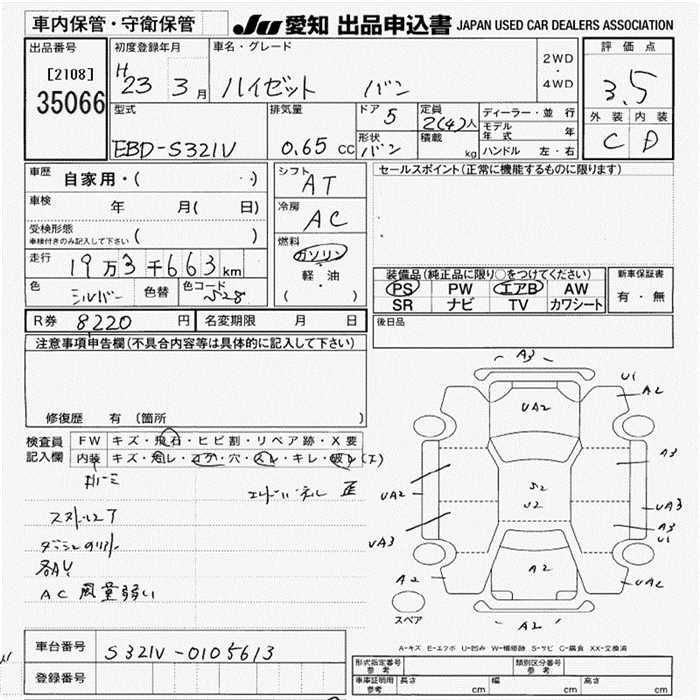 車内保管・守衛保管
JU 愛知 出品申込書 JAPAN USED CAR DEALERS ASSOCIATION
出品番号
[2108]
35066
初度登録年月
H
23 3月
車名・グレード
ハイゼット バン
2WD
・
4WD
評価点
3.5
外装 内装
C D
型式
EBD-S321V
排気量
0.65 CC
ドア 5
形状
バン
定員
2(4)人
積載
kg
ディーラー・並行
モデル年式 年
ハンドル 左・右
車歴
自家用・( ・・)
車検
年 月( 日)
受検形態
車検付きのみ記入して下さい ( )
走行
19万3千663km
色
シルバー
色替
色コード
S28
シフト
AT
冷房
AC
燃料
ガソリン
軽・油
( )
セールスポイント(正常に機能するものに限ります)
装備品(純正品に限り○をつけてください)
PS PW エアB AW
SR ナビ TV カワシート
新車保証書
有・無
R券 8220 円
名変期限 月 日
後日品
注意事項申告欄(不具合内容等は具体的に記入して下さい)
修復歴 有 (箇所 )
検査員
記入欄
FW キズ・飛石・ヒビ割・リペア跡・X要
内装 キズ・汚レ・コゲ・穴・スレ・キレ・破レ
AC 風量弱い
車台番号 S321V-0105613
登録番号
A3
U1
A2
UA2
A3
S2
U2
UA2
UA3
UA3
A3
U1
A2
A2
UA2
スペア
A2
A-キズ E-エクボ U-凹み W-補修跡 S-サビ C-腐食 XX-交換済
形式指定番号
参考
類別区分番号
参考
車庫証明用
参考
長さ cm 幅 cm 高さ cm